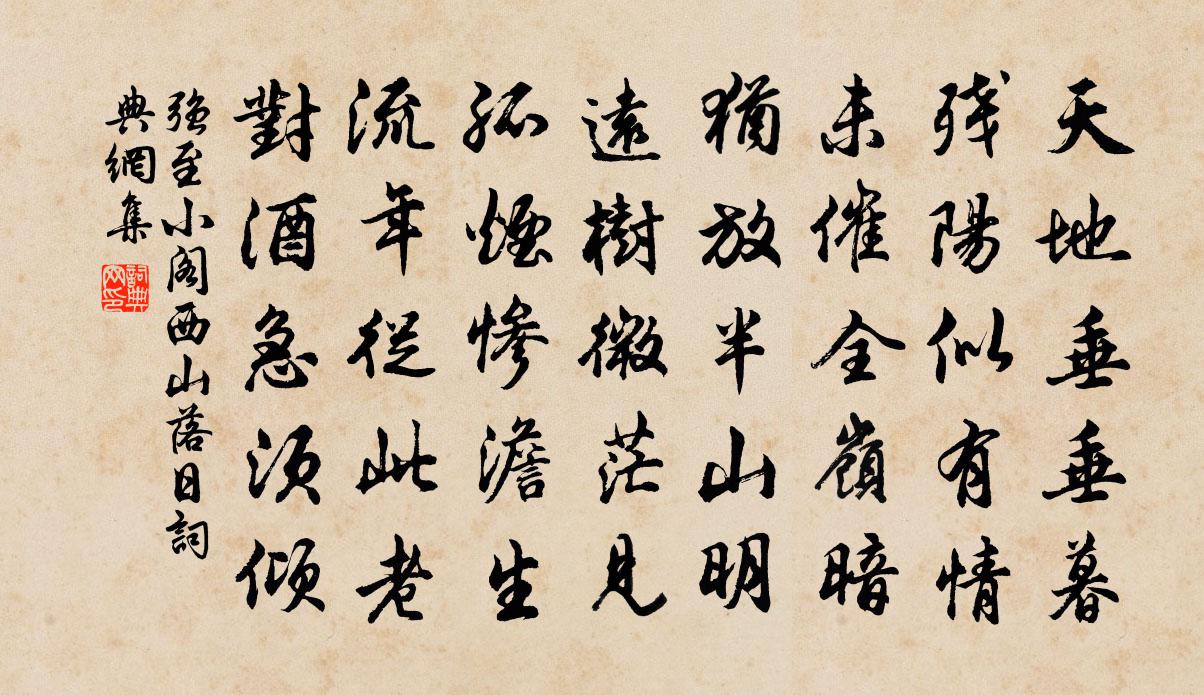 天地垂垂暮
残陽似有情
未催全嶺暗
猶放半山明
遠樹微茫見
孤煙慘澹生
流年從此老
對酒急須傾
强至小阁西山落日詞
典網集
詞典
网印